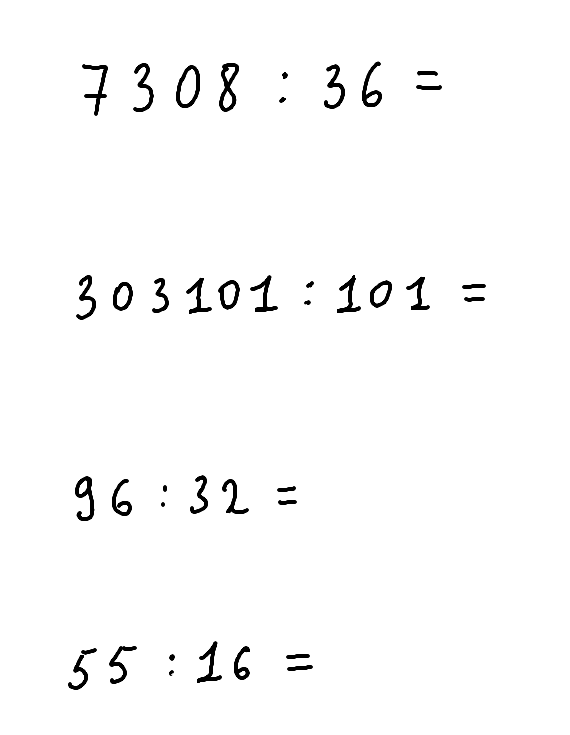 7308 : 36 =
303101 : 101 =
96 : 32 =
55 : 16 =